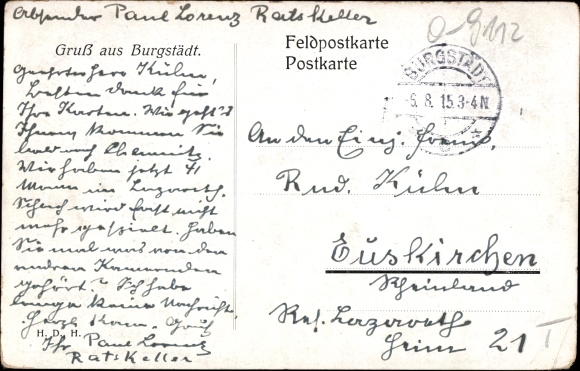 Absender Paul Lorenz Ratskeller
Gruß aus Burgstädt.
Feldpostkarte
Postkarte
BURGSTÄDT
5. 8. 15. 3-4 N
Geehrter Herr Kühn,
besten Dank für
Ihre Karten. Wie geht's
Ihnen kommen Sie
bald nach Chemnitz.
Wir haben jetzt 41
Mann im Lazareth.
Schach wird fast nicht
mehr gespielt. Haben
Sie mal was von den
anderen Kameraden
gehört? Ich habe
lange keine Nachricht.
Herzl. Kam. Gruß
H. D. H.
Ihr Paul Lorenz
Ratskeller
An den Einj. Freiw.
Rud. Kühn
Euskirchen
Rheinland
Res. Lazareth
21